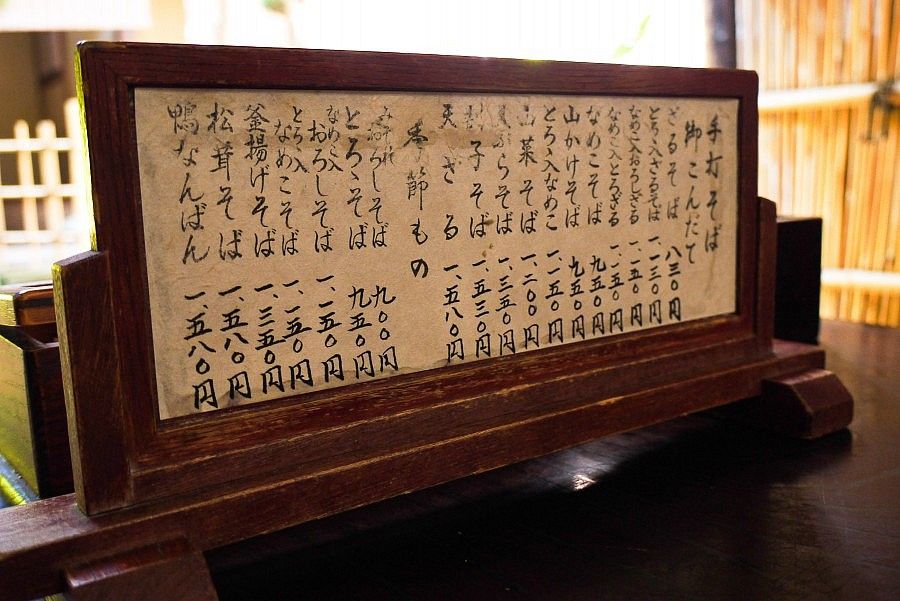 手打そば
御こんだて
ざるそば 八三〇円
とろゝ入ざるそば 一、一三〇円
なめこ入おろしざる 一、一五〇円
なめこ入とろゝざる 一、一五〇円
なめこそば 九五〇円
山かけそば 九五〇円
とろゝ入なめこ 一、一五〇円
山菜そば 一、二〇〇円
天ぷらそば 一、三五〇円
割子そば 一、五三〇円
天ざる 一、五八〇円
季節もの
おろしそば 九〇〇円
とろゝそば 九五〇円
なめこ入おろしそば 一、一五〇円
とろゝ入なめこそば 一、一五〇円
釜揚げそば 一、三五〇円
松茸そば 一、五八〇円
鴨なんばん 一、五八〇円